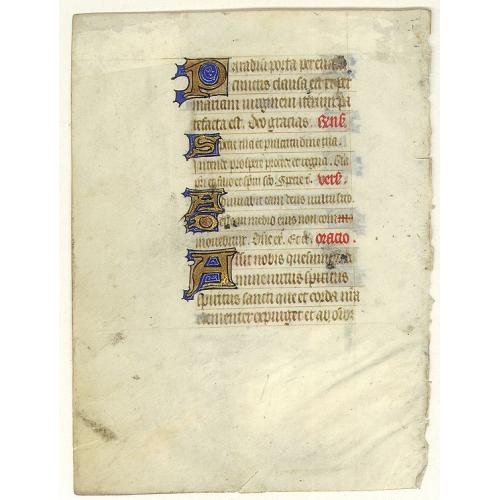 Paradisi porta per euam
cunctis clausa est et per
mariam uirginem iterum pa
tefacta est. Deo gracias.
Specie tua et pulcritudine tua.
Intende prospere procede et regna. Gla
patri et filio et spiritui sco. Specie t. vers.
Adiuuabit eam deus uultu suo
Deus in medio eius non com
mouebitur. Dne ex. Et cl. oracio.
Assit nobis quesumus
dne uirtus spiritus
spiritus sancti que et corda nra
clementer expurget et ab oibs